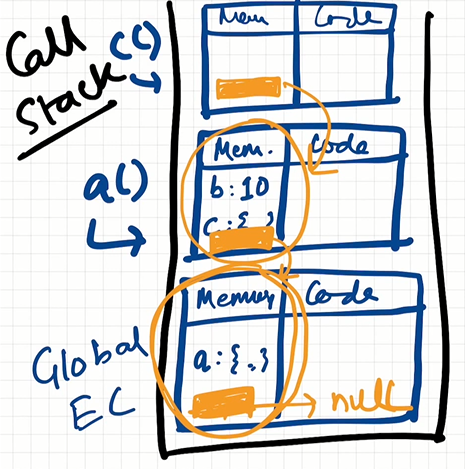 Call
Stack
c()
Mem
Code
a()
Mem.
Code
b:10
c:{
Global
EC
Memory
Code
a:{..}
null